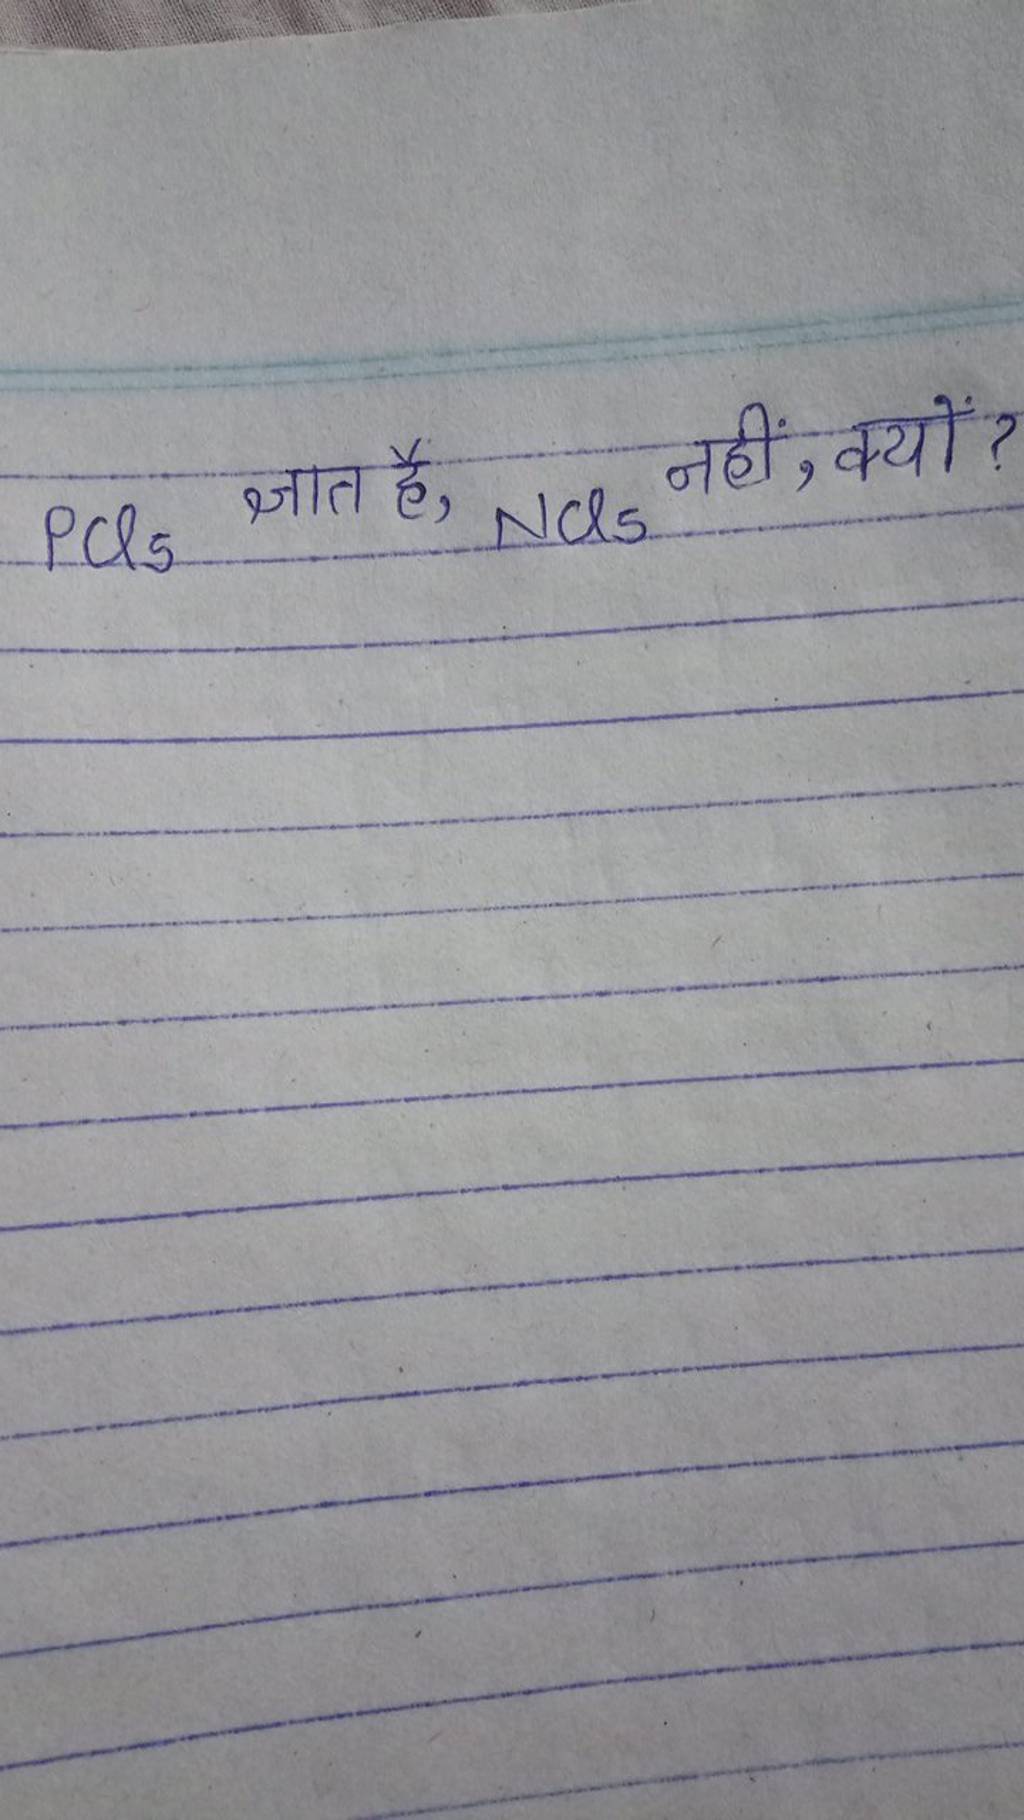 PCl5 ज्ञात है, NCl5 नहीं, क्यों ?